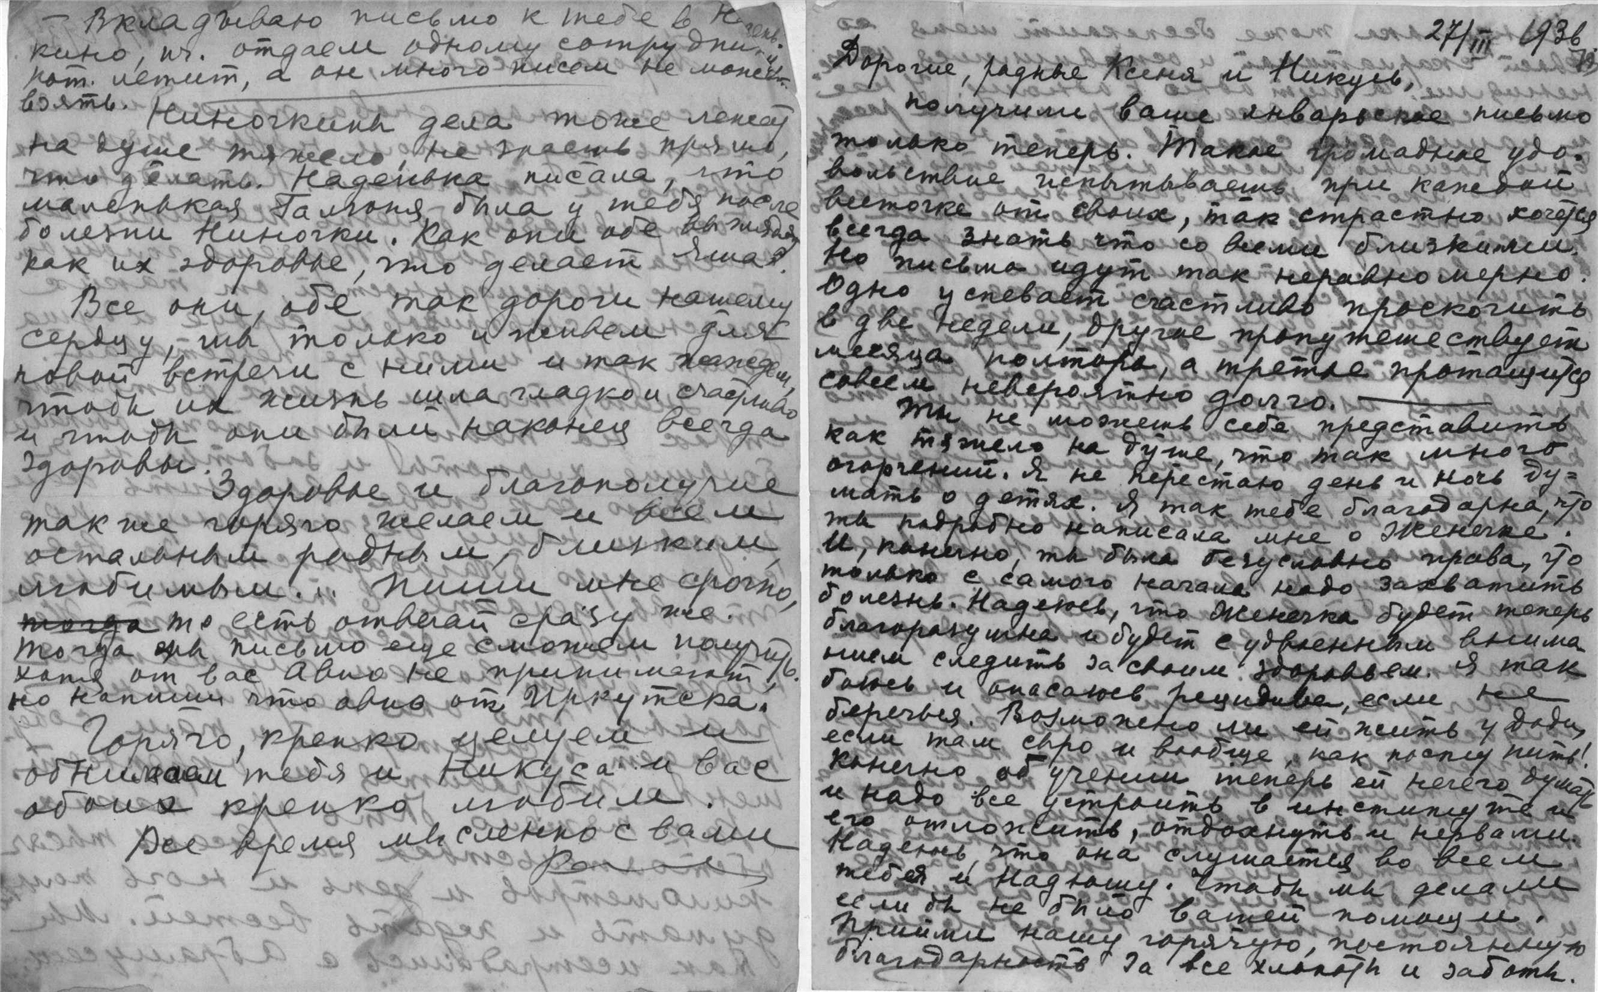 — Вкладываю письмо к тебе в
кино, пч. отдаем одному сотрудни-
кот. летит, а он много писем не может
взять. Ниночкины дела тоже лежат
на душе тяжело, не знаешь прямо,
что делать. Наденька писала, что
маленькая Галюня была у тебя после
болезни Ниночки. Как они обе выглядят
как их здоровье, что делает Яша?
Все они, обе так дороги нашему
сердцу, мы только и живем для
новой встречи с ними и так жаждем,
чтобы их жизнь шла гладко и счастливо
и чтобы они были наконец всегда
здоровы.
Здоровье и благополучие
также горячо желаем и всем
остальным родным, близким,
любимым... Пиши мне срочно,
тогда то есть отвечай сразу же.
Тогда мы письмо еще сможем получить.
хотя от вас Авио не принимают,
но напиши что авио от Иркутска.
Горячо, крепко целуем и
обнимаем тебя и Никуся и вас
обоих крепко любим.
Все время мысленно с вами
27/III 1936
Дорогие, родные Ксеня и Никусь,
получили ваше январьское письмо
только теперь. Такое громадное удо-
вольствие испытываешь при каждой
весточке от своих, так страстно хочется
всегда знать что со всеми близкими.
Но письма идут так неравномерно.
Одно успевает счастливо проскочить
в две недели, другое пропутешествует
месяца полтора, а третье протащится
совсем невероятно долго.
Ты не можешь себе представить
как тяжело на душе, что так много
огорчений. Я не перестаю день и ночь ду=
мать о детях. Я так тебе благодарна, что
ты подробно написала мне о Женечке.
И, конечно, ты была безусловно права, что
только с самого начала надо захватить
болезнь. Надеюсь, что Женечка будет теперь
благоразумна и будет с удвоенным внима
нием следить за своим здоровьем. Я так
боюсь и опасаюсь рецидива, если не
беречься. Возможно ли ей жить у Доди,
если там сыро и вообще, как поступить!
Конечно об учении теперь ей нечего думать
и надо все устроить в институте и
его отложить, отдохнуть и нервами.
Надеюсь, что она слушается во всем
тебя и Надюшу. Чтобы мы делали
если бы не было вашей помощи.
Прийми нашу горячую, постоянную
благодарность за все хлопоты и заботы.